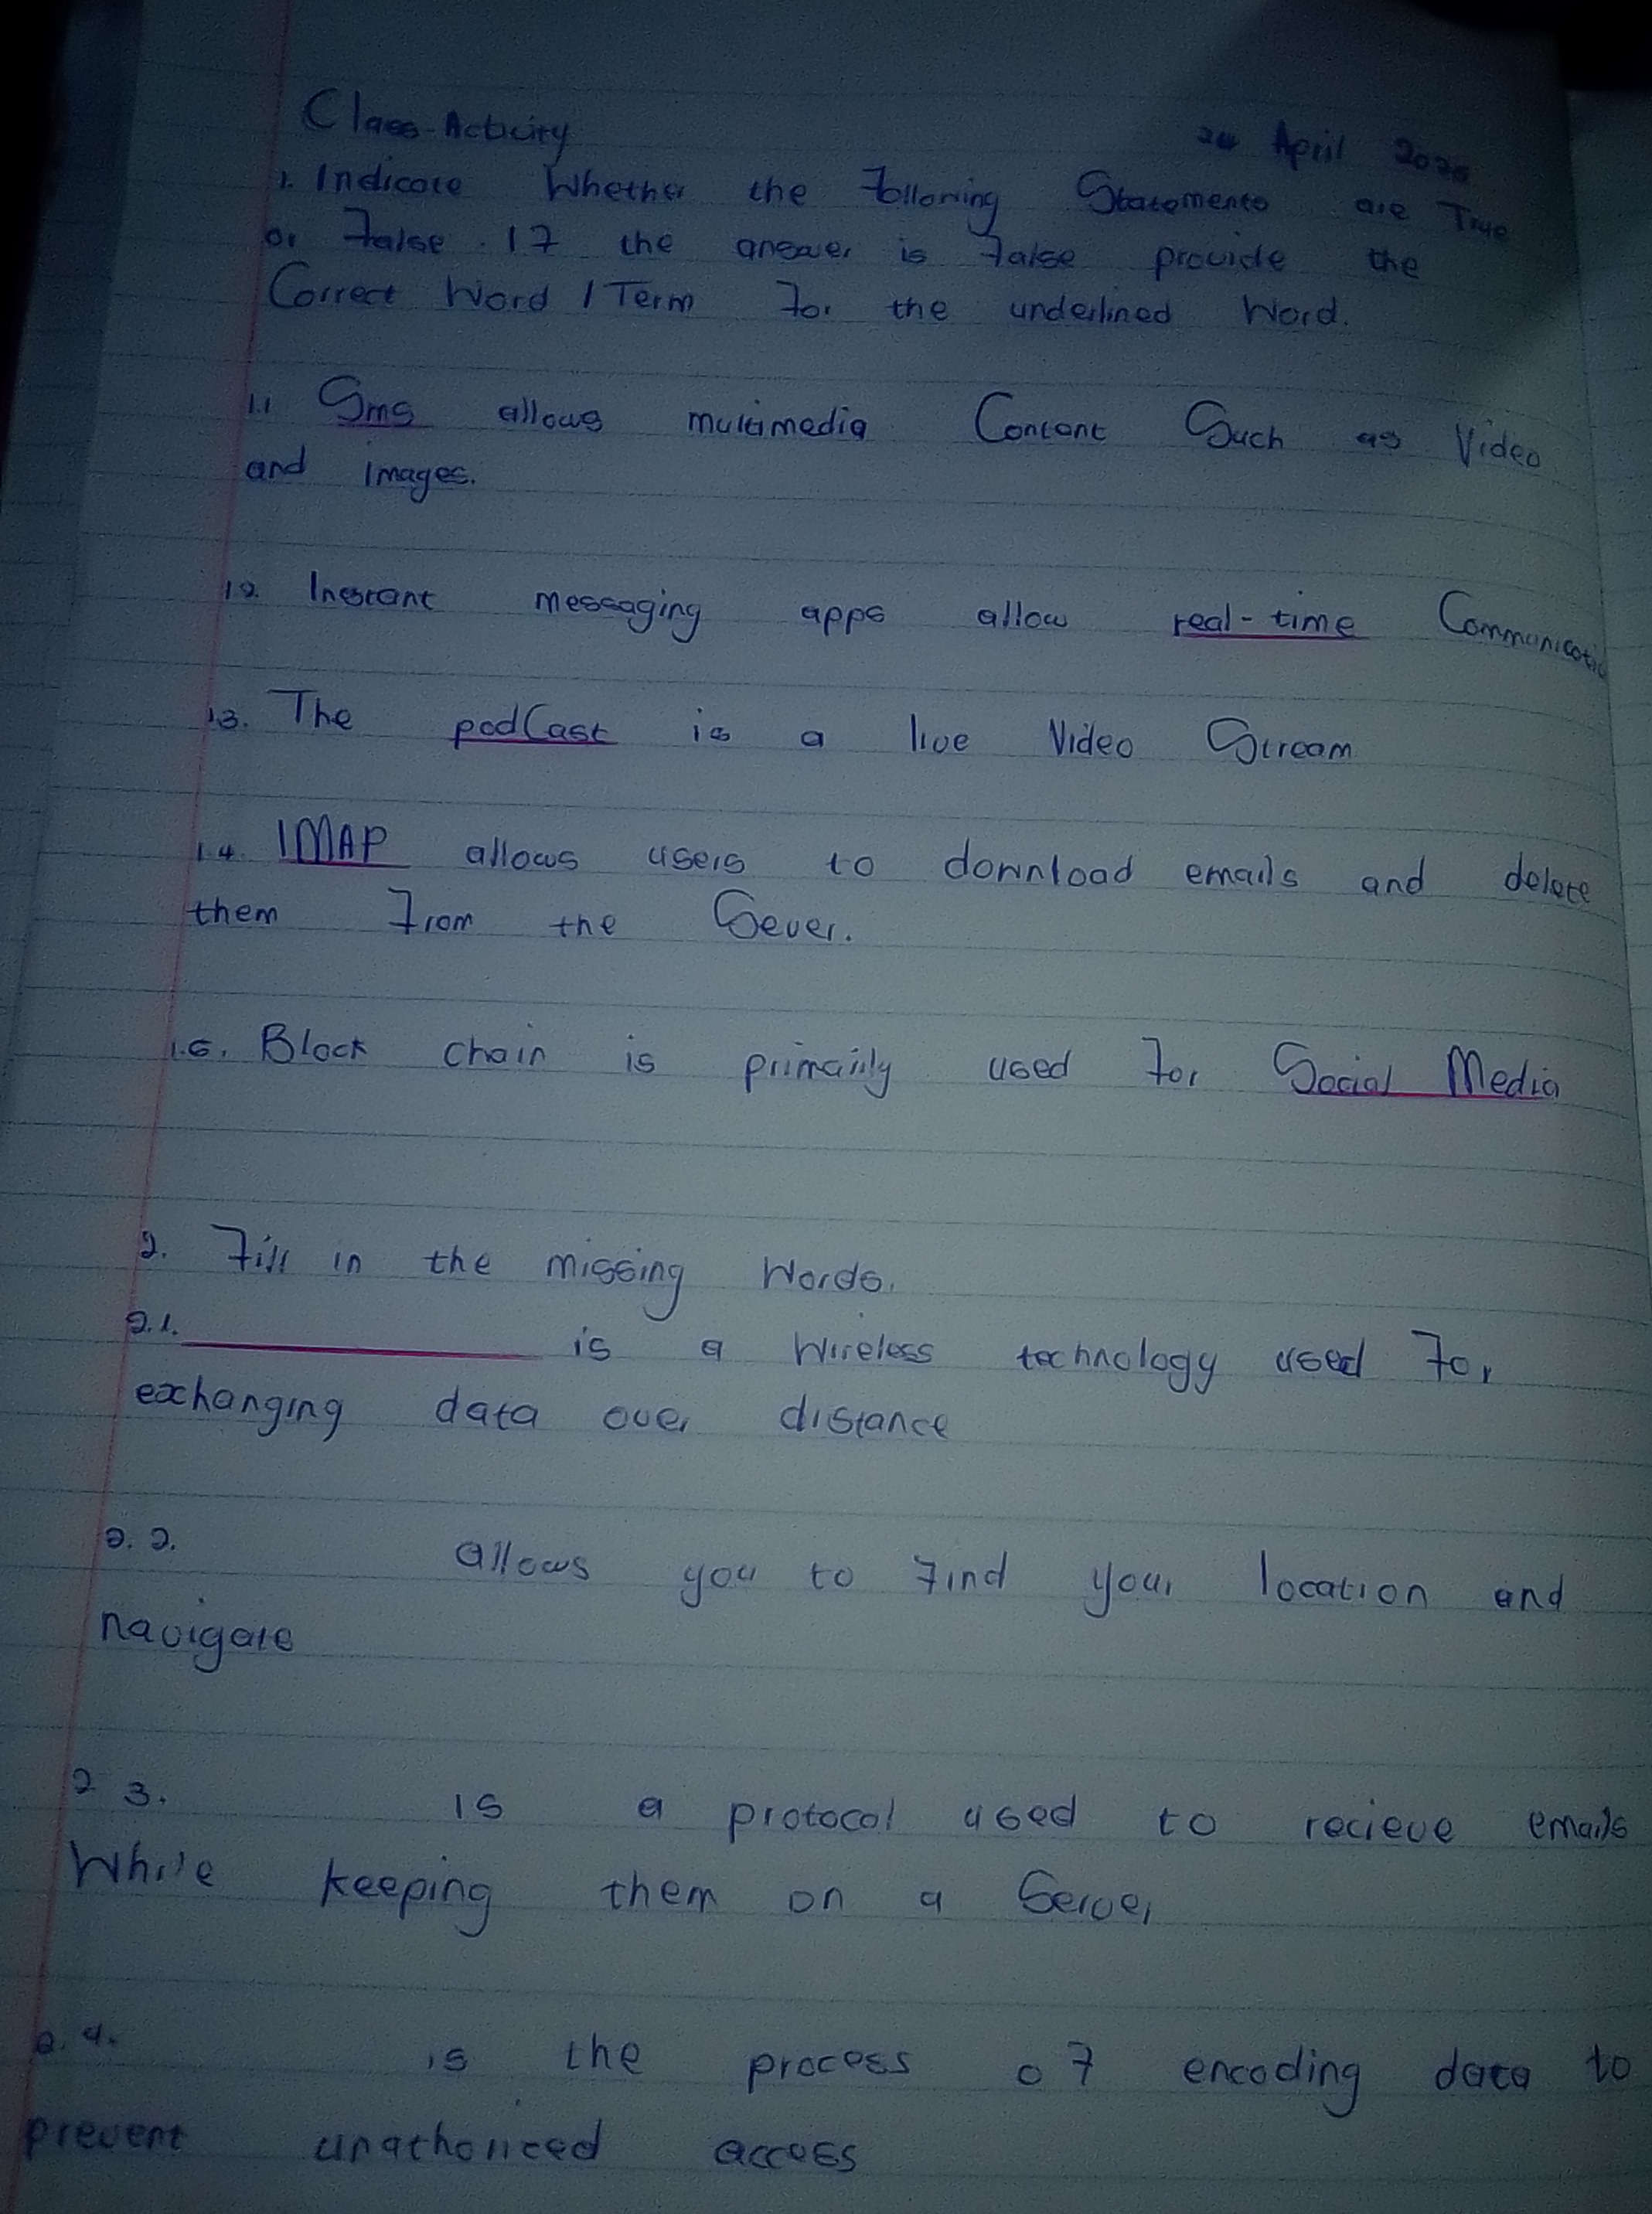 Class Activity 24 April 2025
1. Indicate Whether the following Statements are True
or false. If the answer is false provide the
Correct Word / Term for the underlined Word.
1.1 Sms allows multimedia Content Such as Video
and images.
1.2. Instant messaging apps allow real-time Communicatio
1.3. The podCast is a live Video Stream
1.4. IMAP allows users to download emails and delete
them from the Sever.
1.5. Block chain is primarily used for Social Media
2. Fill in the missing Words.
2.1. is a Wireless technology used for
exchanging data over distance
2.2. allows you to find your location and
navigate
2 3. is a protocol used to recieve emails
While keeping them on a Server
2.4. is the process of encoding data to
prevent unathoriced access